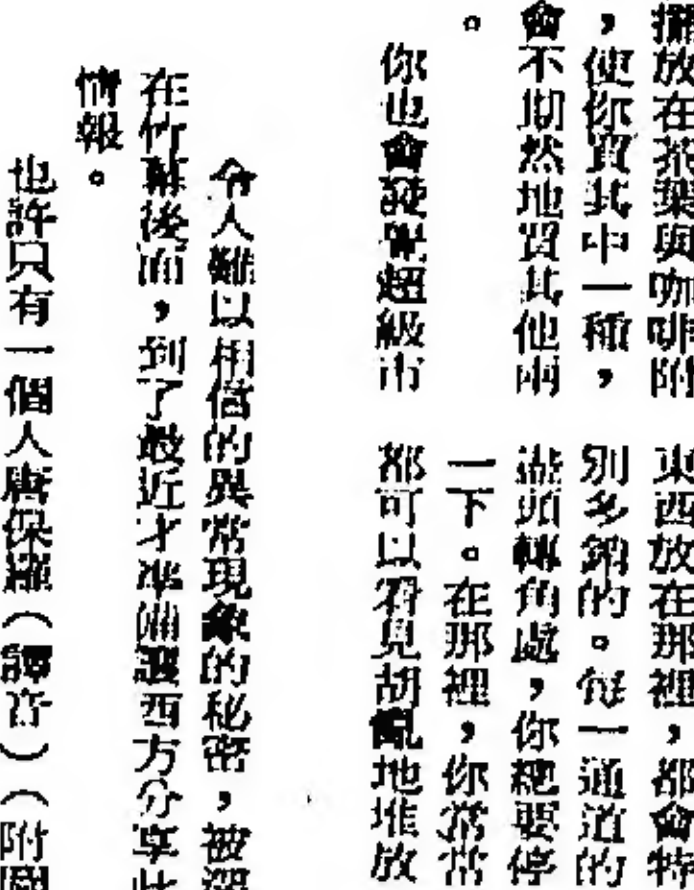 擺放在茶葉與咖啡附
，使你買其中一種，
會不期然地買其他兩
。
你也會發覺超級市
東西放在那裡，都會特
別多銷的。每一通道的
盡頭轉角處，你總要停
一下。在那裡，你常常
都可以看見胡亂地堆放
令人難以相信的異常現象的秘密，被
在竹幕後面，到了最近才準備讓西方分享此
情報。
也許只有一個人唐保羅（譯音）（附圖